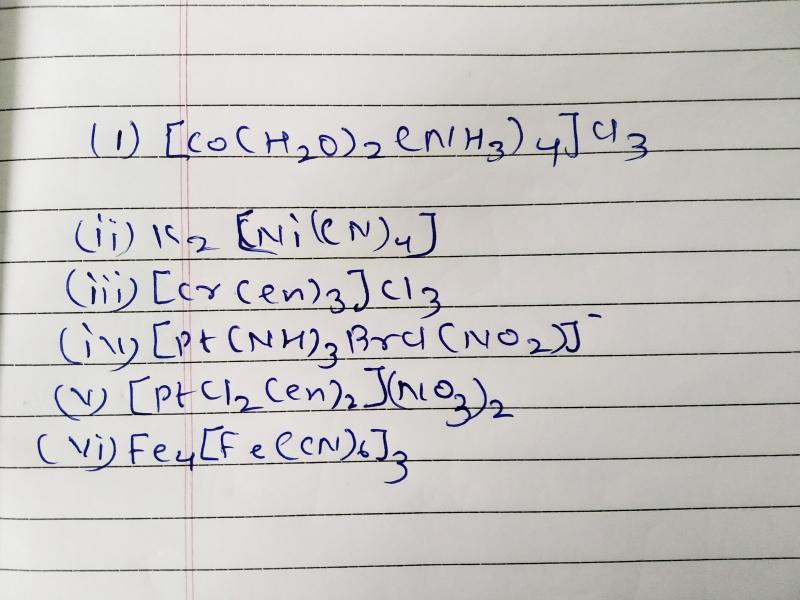 (1) [Co(H2O)2(NH3)4]Cl3
(ii) K2 [Ni(CN)4]
(iii) [Cr(en)3]Cl3
(iv) [Pt(NH)3BrCl(NO2)]-
(v) [PtCl2(en)2](NO3)2
(vi) Fe4[Fe(CN)6]3